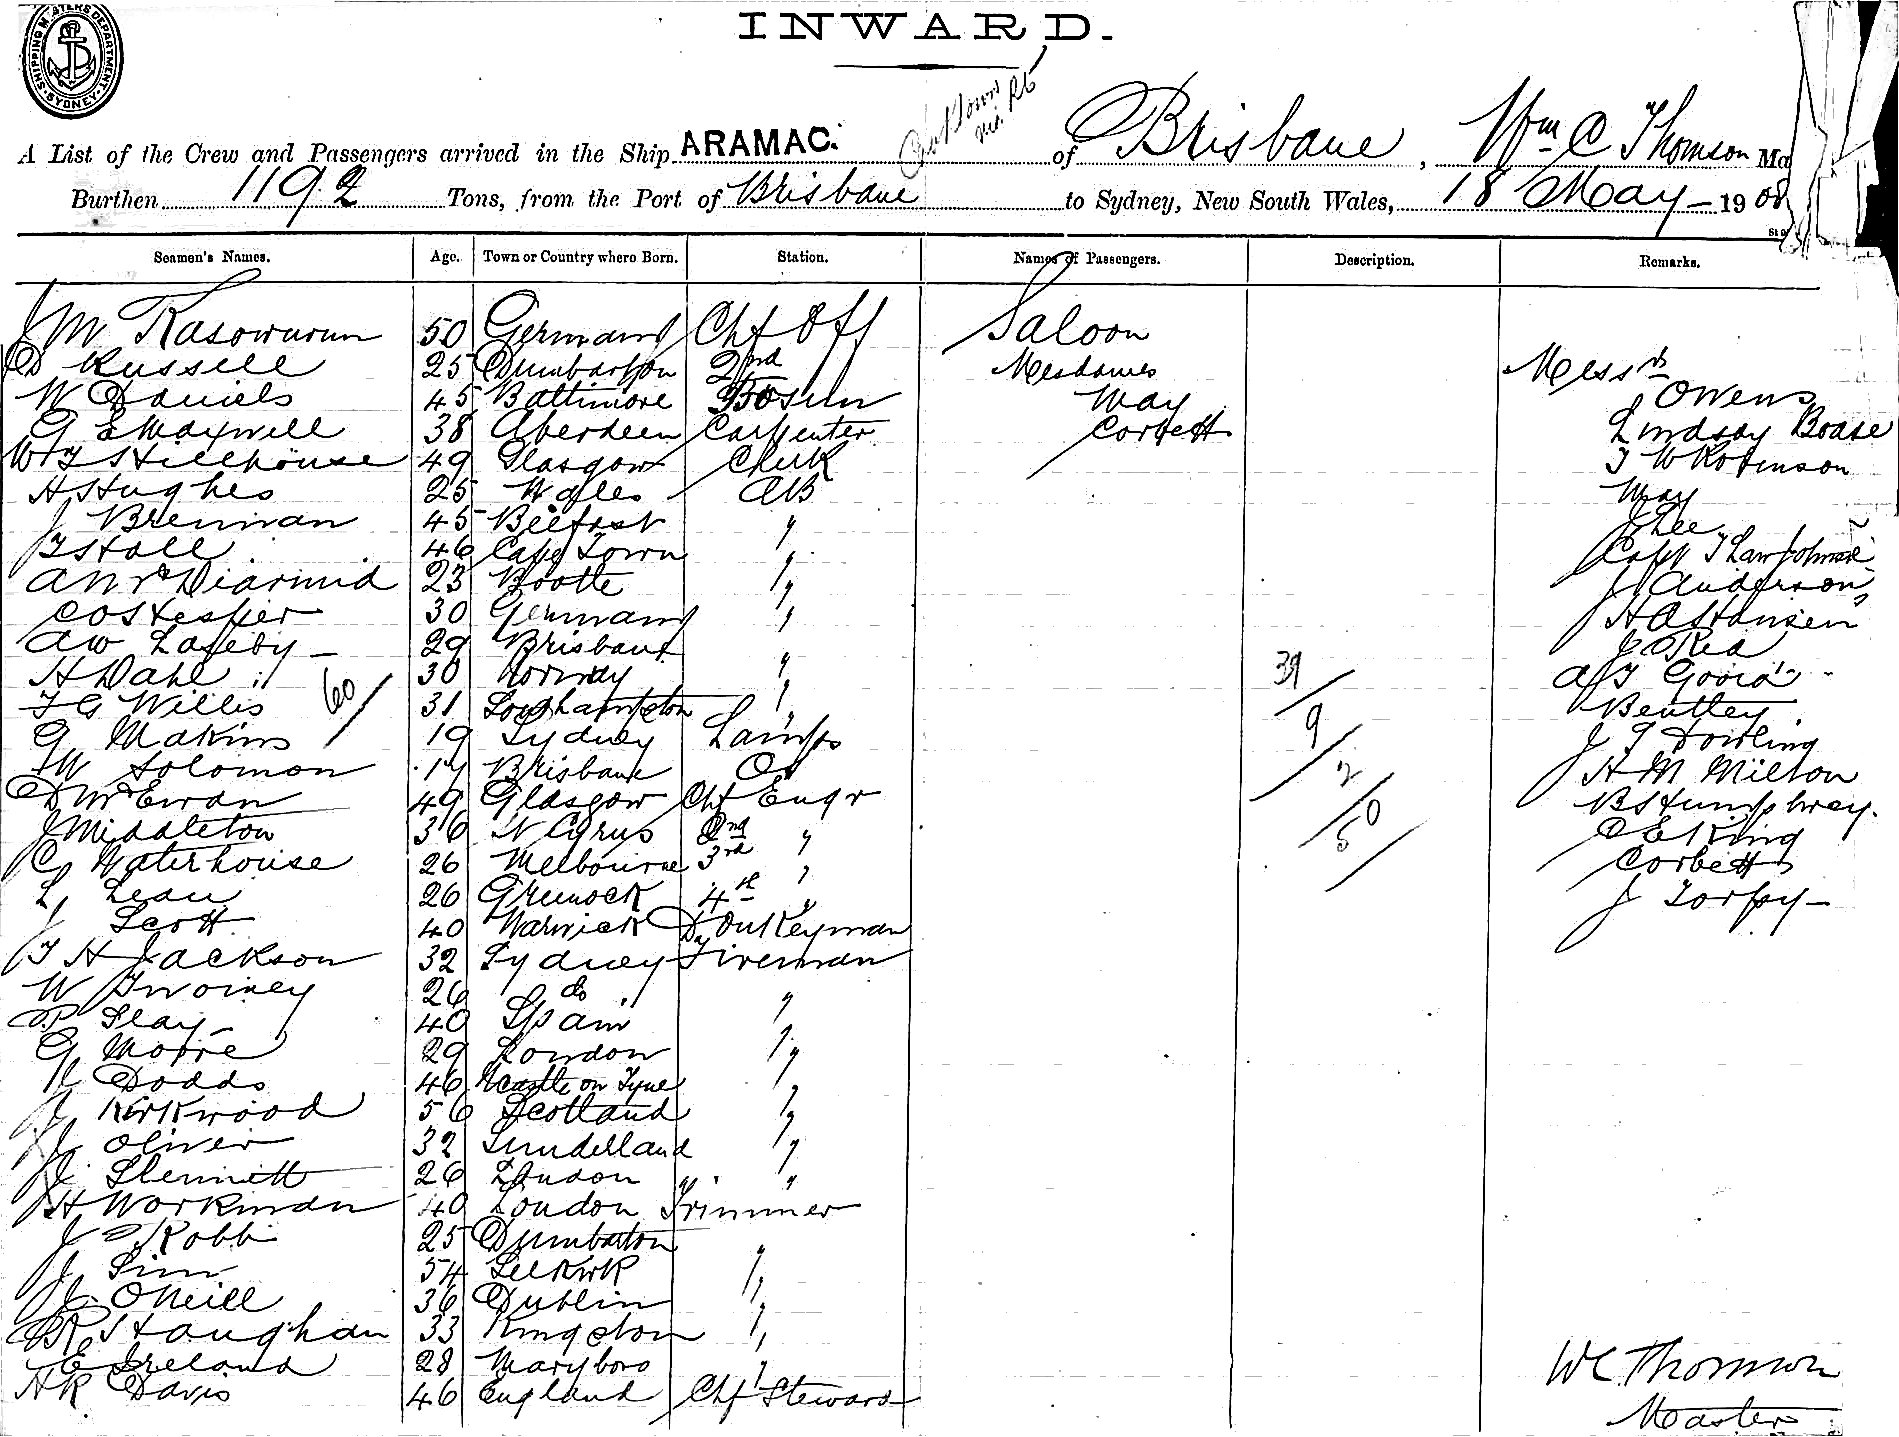 INWARD.
SHIPPING MASTERS DEPARTMENT SYDNEY
A List of the Crew and Passengers arrived in the Ship ARAMAC. of Brisbane, Wm C Thomson Ma
Burthen 1192 Tons, from the Port of Brisbane to Sydney, New South Wales, 18 May 1908
Seamen's Names. Age. Town or Country where Born. Station. Names of Passengers. Description. Remarks.
J M 50 Germany Chf Off Saloon
D Russell 25 Dumbarton 2nd Mesdames Messrs
W Daniels 45 Baltimore Bosun Way Owens
G E Maxwell 38 Aberdeen Carpenter Corbett Lindsay Boase
W T Stillhouse 49 Glasgow Clerk T W Robinson
H Hughes 25 Wales AB Way
J Brennan 45 Belfast " J Lee
46 Cape Town " Capt T
A N McDiarmid 23 Bootle " J Anderson
30 Germany " H A Hansen
A W Laseby 29 Brisbane J Rea
H Dahl 30 Norway " 39 A J
T G Willis 60 31 Southampton " Bentley
G Makins 19 Sydney Lamps 9 J T Dowling
W Solomon 17 Brisbane OS 2 H M Milton
D McEwan 49 Glasgow Chf Engr B Humphrey.
J Middleton 36 St Cyrus 2nd " 50 C E King
C Waterhouse 26 Melbourne 3rd " Corbett
L Lean 26 Greenock 4th " J Torpy
J Scott 40 Warwick Donkeyman
T H Jackson 32 Sydney Fireman
W Twomey 26 do "
P Slay 40 Spain
G Moore 29 London "
R Dodds 46 Ncastle on Tyne
J Kirkwood 56 Scotland "
J Oliver 32 Sunderland "
J Slennett 26 London " "
H Workman 40 London Trimmer
J Robb 25 Dumbarton
J Sim 54 Selkirk "
J O'Neill 36 Dublin
R Staughan 33 Kingston "
E Ireland 28 Maryboro "
H R Davis 46 England Chf Steward
W C Thomson
Master